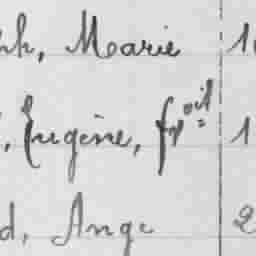 ph, Marie 1
, Eugène, fçoit 1
d, Ange 2